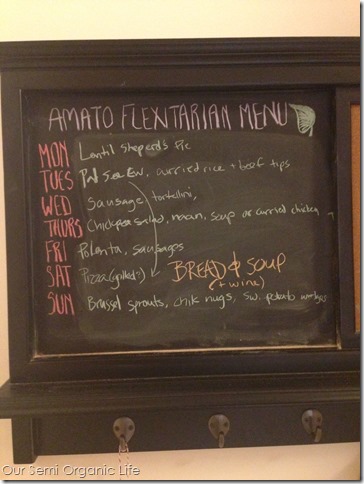 AMATO FLEXITARIAN MENU
MON Lentil Sheperd's Pie
TUES curried rice + beef tips
WED Sausage tortellini,
THURS Chickpea Salad, naan, soup or curried chicken
FRI Polenta, sausages
SAT Pizza (grilled?) BREAD & SOUP
(+ wine)
SUN Brussel sprouts, chik nugs, sw. potato
Our Semi Organic Life